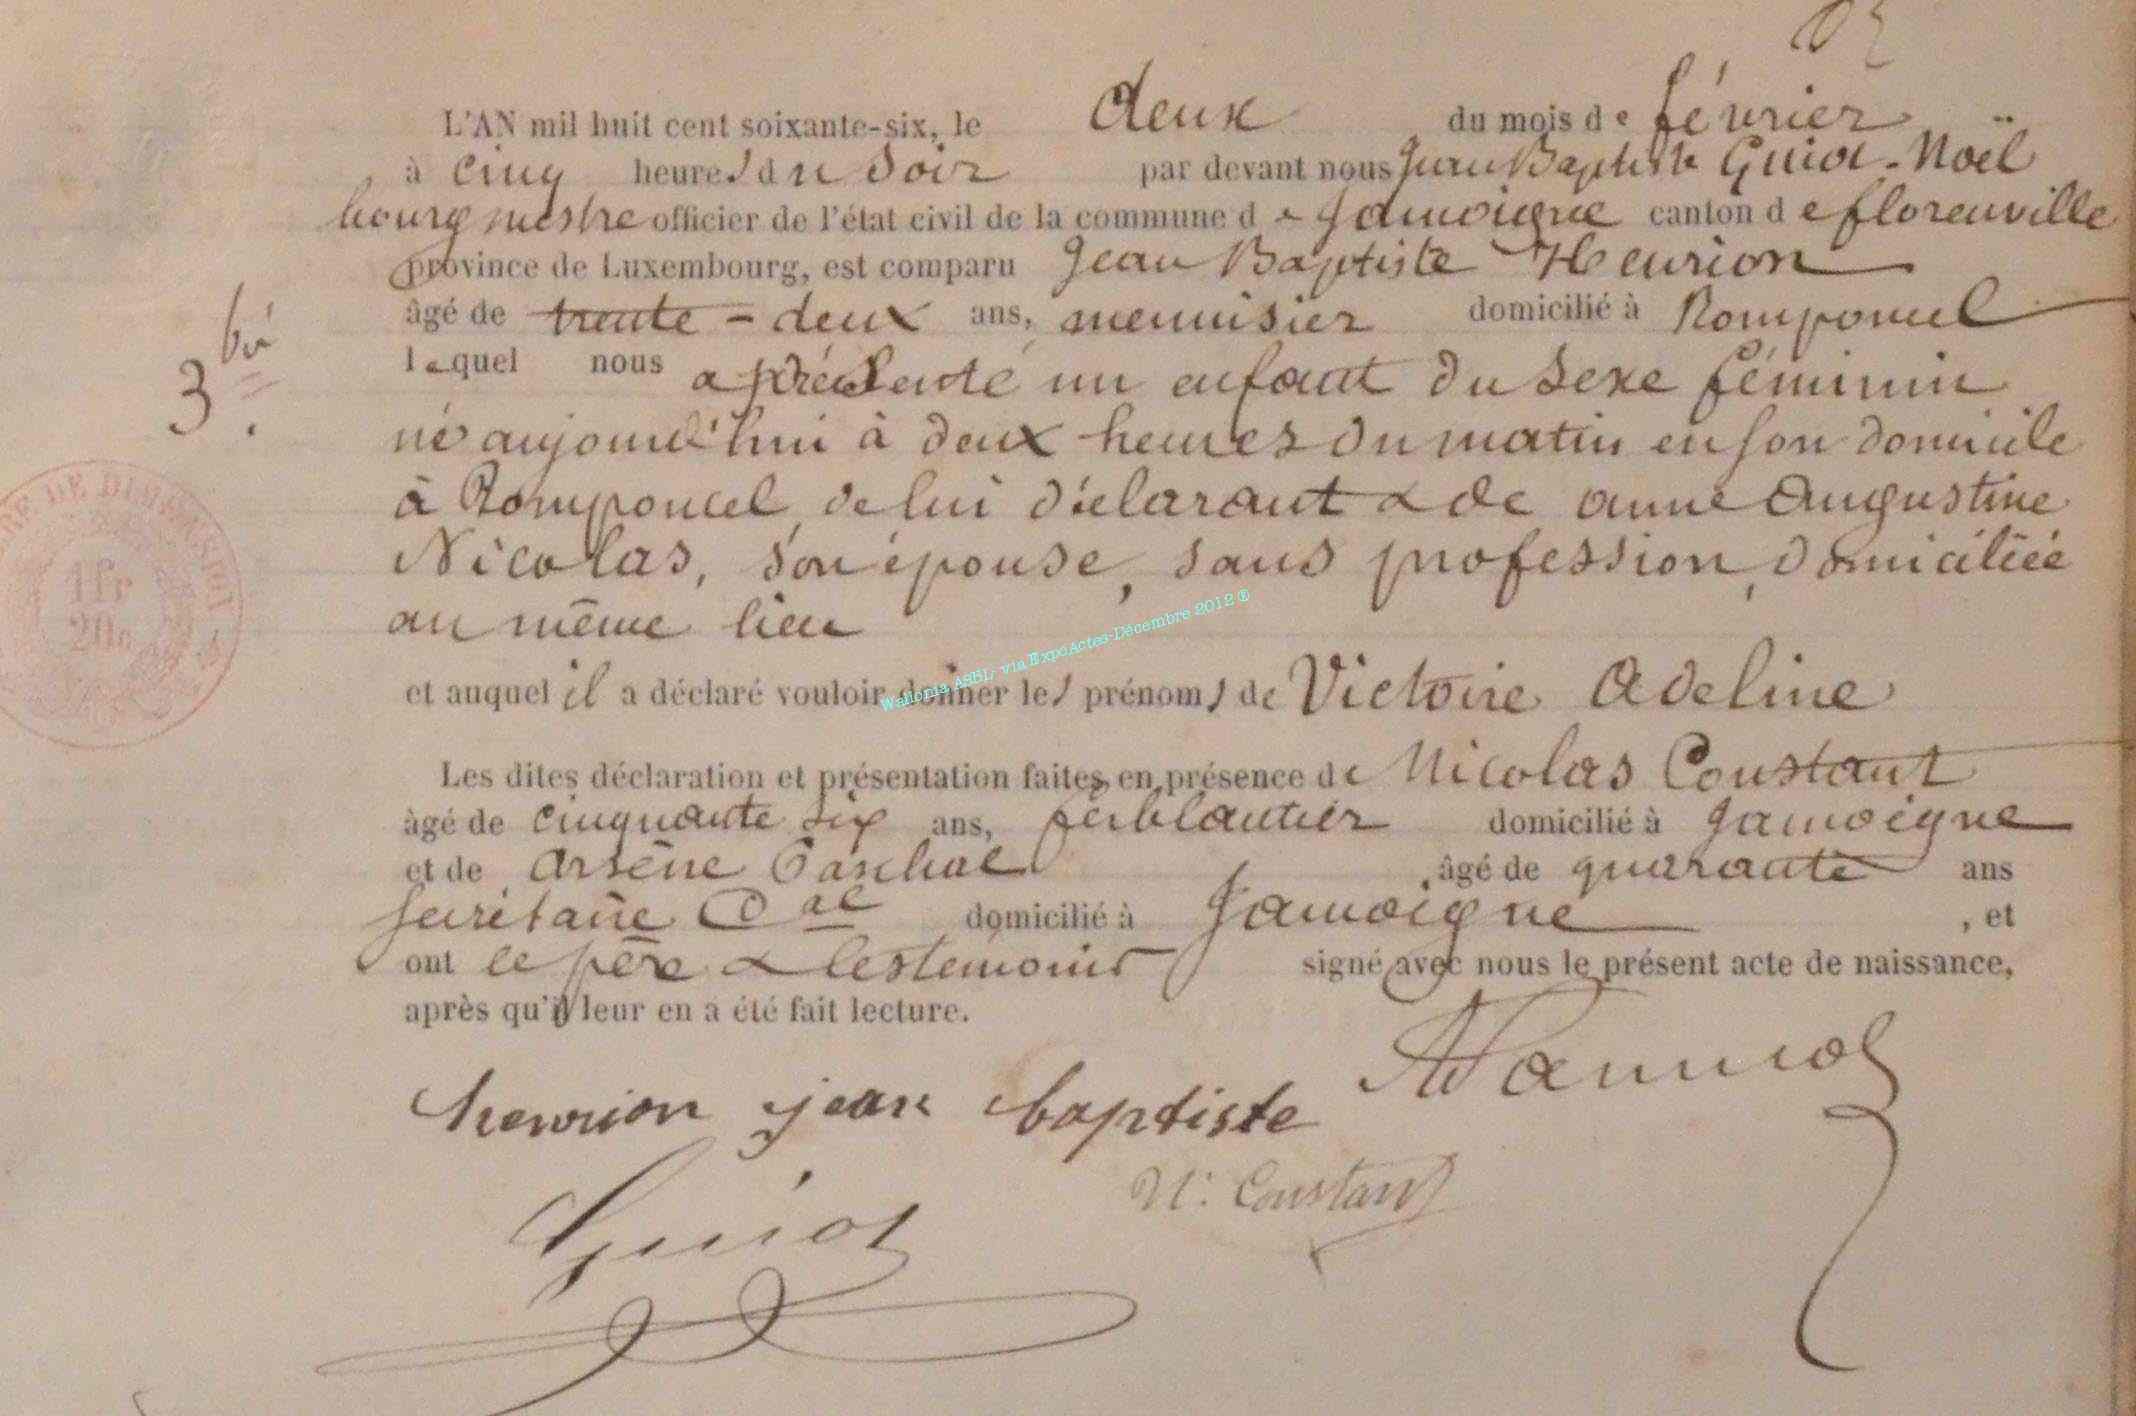 L'AN mil huit cent soixante-six, le deux du mois de février
à cinq heures du soir par devant nous Jean Baptiste Guiot-Noël
bourgmestre officier de l'état civil de la commune de Jamoigne canton de florenville
province de Luxembourg, est comparu Jean Baptiste Henrion
âgé de trente-deux ans, menuisier domicilié à Romponcel
lequel nous a présenté un enfant du sexe féminin
3 bis.
né aujourd'hui à deux heures du matin en son domicile
à Romponcel, de lui déclarant & de anne Augustine
Nicolas, son épouse, sans profession, domiciliée
au même lieu
DE DIMENSION
1 fr
20c
Wallonia ASBL, via ExpoActes-Décembre 2012 ®
et auquel il a déclaré vouloir donner les prénoms de Victoire Adeline
Les dites déclaration et présentation faites en présence de Nicolas Constant
âgé de cinquante six ans, ferblantier domicilié à Jamoigne
et de Arsène âgé de quarante ans
secrétaire Cal domicilié à Jamoigne, et
ont le père & les témoins signé avec nous le présent acte de naissance,
après qu'il leur en a été fait lecture.
henrion jean baptiste
N. Constant
Guiot